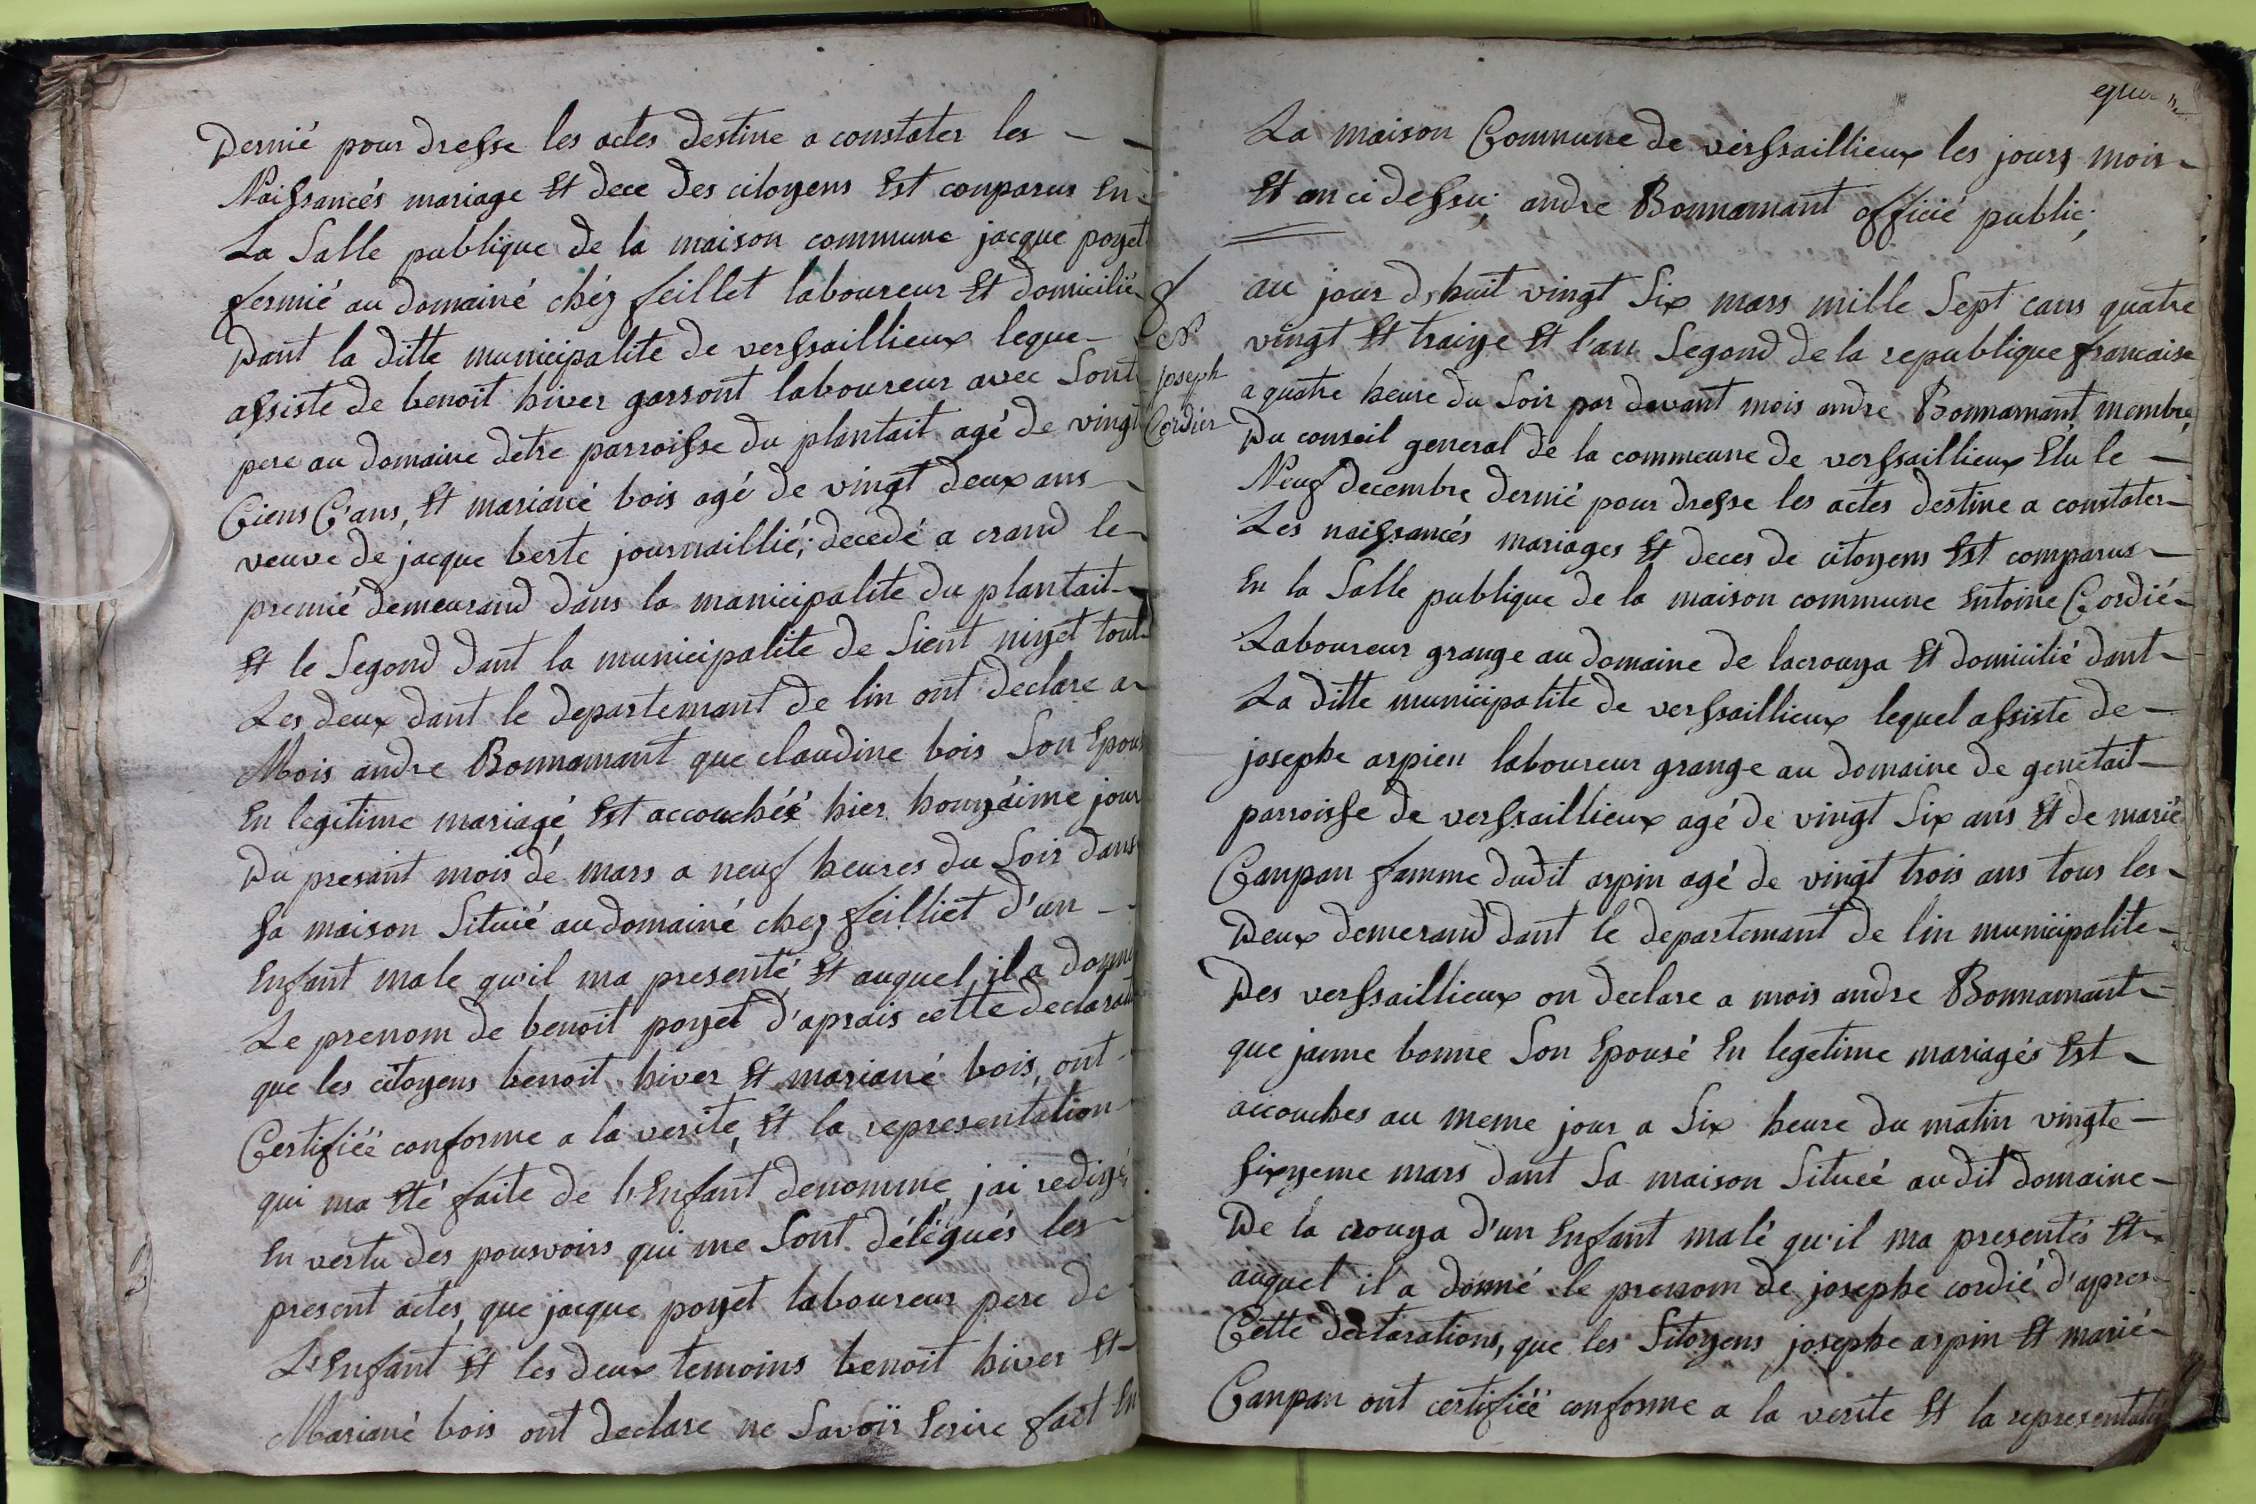 Dernié pour dresse les actes destine a constater les
Naissancés mariage Et dece des citoyens Est conparus En
La Salle publique de la maison commune jacque poyet
fermié au domainé chéz feillet laboureur Et domicilié
Dant la ditte municipalite de verssaillieux leque
assiste de benoit hiver garsont laboureur avec Sont
pere au domaine detre parroisse du plantait agé de vingt
Ciens C'ans, Et marianè bois agé de vingt deux ans
veuve de jacque berte journaillié, decedé a crand le
premié demeurand dans la municipalite du plantait
Et le Segond dant la municipalite de Sient nizet tout
Les deux dant le departemant de lin ont declare a
Mois andre Bonnamant que claudine bois Son Epous
En legitime mariagé Est accouchéé hier honzáime jour
Du presant mois dé mars a neuf heures du Soir dans
Sa maison Situié au domainé chez feilliet d'un
Enfant male qu'il ma presenté Et auquel il a donné
Le prenom de benoit poyet d'aprais cette declarati
que les citoyens benoit hiver Et marianè bois, ont
Certifiéé conforme a la verite, Et la representation
qui ma Eté faite de l'Enfant denommé, jai redigé
En vertu des pouvoirs qui me Sont délégués les
present actes, que jacque poyet laboureur pere de
L'Enfant Et les deux temoins benoit hiver Et
Marianè bois ont declare ne Savoir Ecrire fait En
La maison Commune de verssaillieux les jours mois
Et an ci dessu; andre Bonnamant officié public;
N
Joseph
Cordier
au jour d, huit vingt Six mars mille Sept cans quatre
vingt Et traize Et l'an Segond de la republique francaise
a quatre heure du Soir par devant mois andre Bonnamant, membre
Du conseil general de la commeune de verssaillieux Elu le
Neuf decembre dernié pour dresse les actes destine a constater
Les naissancés mariages Et deces de citoyens Est comparus
En la Salle publique de la maison commune Entoine Cordié
Laboureur grange au domaine de lacrouya Et domicilié dant
La ditte municipalite de verssaillieux lequel assiste de
josephe aspien laboureur grange au domaine de genetait
parroisse de verssaillieux agé de vingt Six ans Et de marié
Canpan famme dudit aspin agé de vingt trois ans tous les
Deux demerand dant le departemant de lin municipalite
Des verssaillieux on declare a mois andre Bonnamant
que janne bonne Son Epousé En legetime mariagés Est
accouches au meme jour a Six heure du matin vingte
Sixyeme mars dant Sa maison Situéé au dit domaine
De la crouya d'un Enfant malé qu'il ma presentés Et
auquel il a donné le prenom de josephe cordié d'apres
Cette declarations, que les Sitoyens josephe aspin Et marié
Canpan ont certifiéé conforme a la verite Et la representati